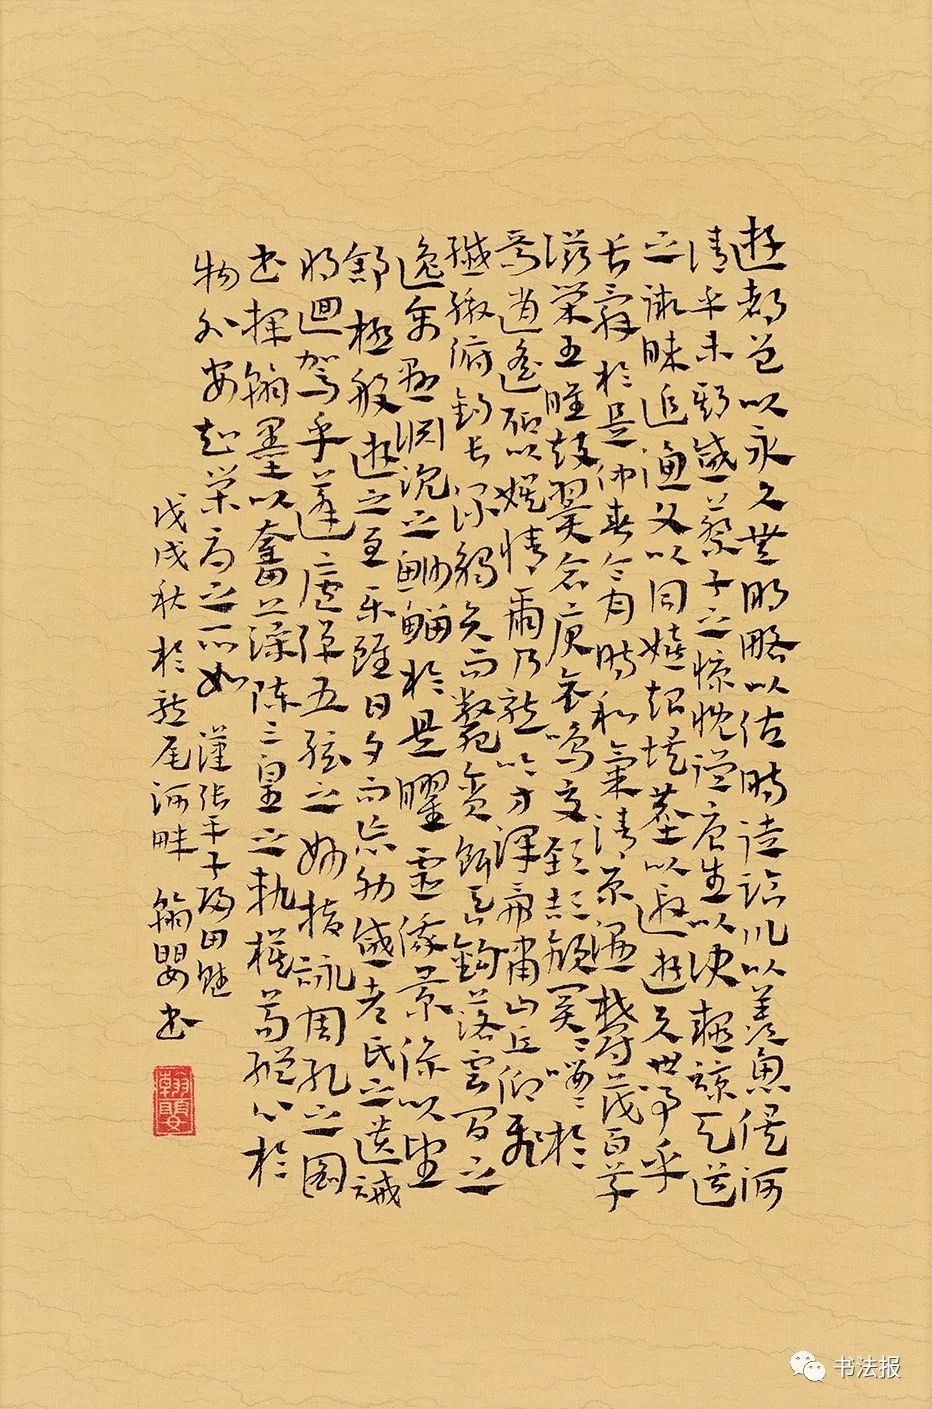 遊都邑以永久無明略以佐時徒臨川以羨魚俟河
清乎未期感蔡子之慷慨從唐生以決疑諒天道
之微昧追漁父以同嬉超埃塵以遐逝與世事乎
長辭於是仲春令月時和氣清原隰鬱茂百草
滋榮王雎鼓翼倉庚哀鳴交頸頡頏關々嚶々於
焉逍遙聊以娛情爾乃龍吟方澤虎嘯山丘仰飛
纖繳俯釣長流觸矢而斃貪餌吞鉤落雲間之
逸禽懸淵沉之鯋鰡於是曜靈俄景係以望
舒極般遊之至樂雖日夕而忘劬感老氏之遺誡
將迴駕乎蓬廬彈五弦之妙指詠周孔之圖
書揮翰墨以奮藻陳三皇之軌模苟縱心於
物外安知榮辱之所如 漢張平子歸田賦
戊戌秋於龍尾河畔 翰嬰書
翰嬰
书法报